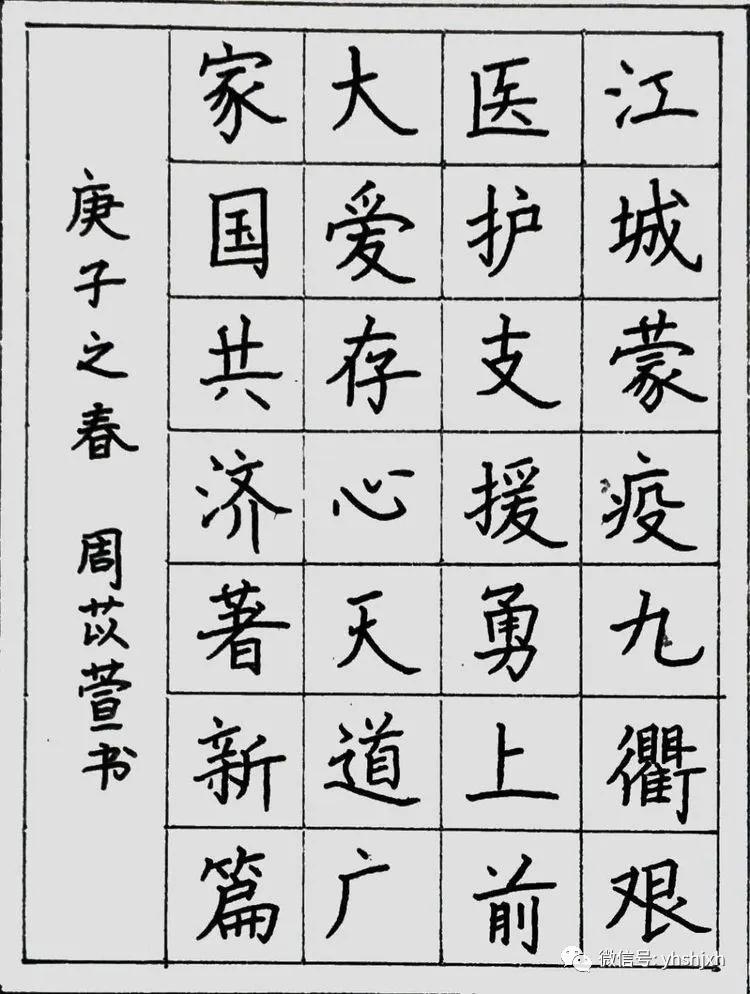 江城蒙疫九衢艰
医护支援勇上前
大爱存心天道广
家国共济著新篇
庚子之春 周苡萱书
微信号: yhshjxh